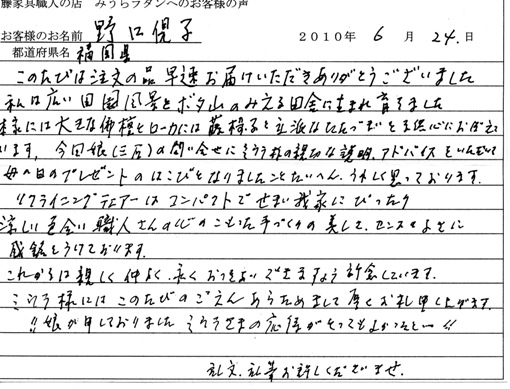 藤家具職人の店 みうらラタンへのお客様の声
お客様のお名前 野口悦子 2010年 6月 24日
都道府県名 福岡県
このたびは注文の品早速お届けいただきありがとうございました
私は広い田園風景とボタ山のみえる田舎に生まれ育ちました
様には大きな佛檀とローカには藤椅子と立派な
います。今回娘(三原)の問い合せに 親切な説明、アドバイスをいただいて
母の日のプレゼントのはこびとなりましことたいへんうれしく思っております。
リクライニングチェアーはコンパクトでせまい我家にぴったり
涼しい色合い職人さんの心のこもった手づくりの美しさ、センスのよさに
感銘をうけております。
これからは親しく仲よく永くおつきあいできますよう祈念しています。
みうら様にはこのたびのごえんあらためまして厚くお礼申し上げます。
!!娘が申しておりました みうらさまの応待がとってもよかったと…!!
乱文、乱筆お許しくださいませ。